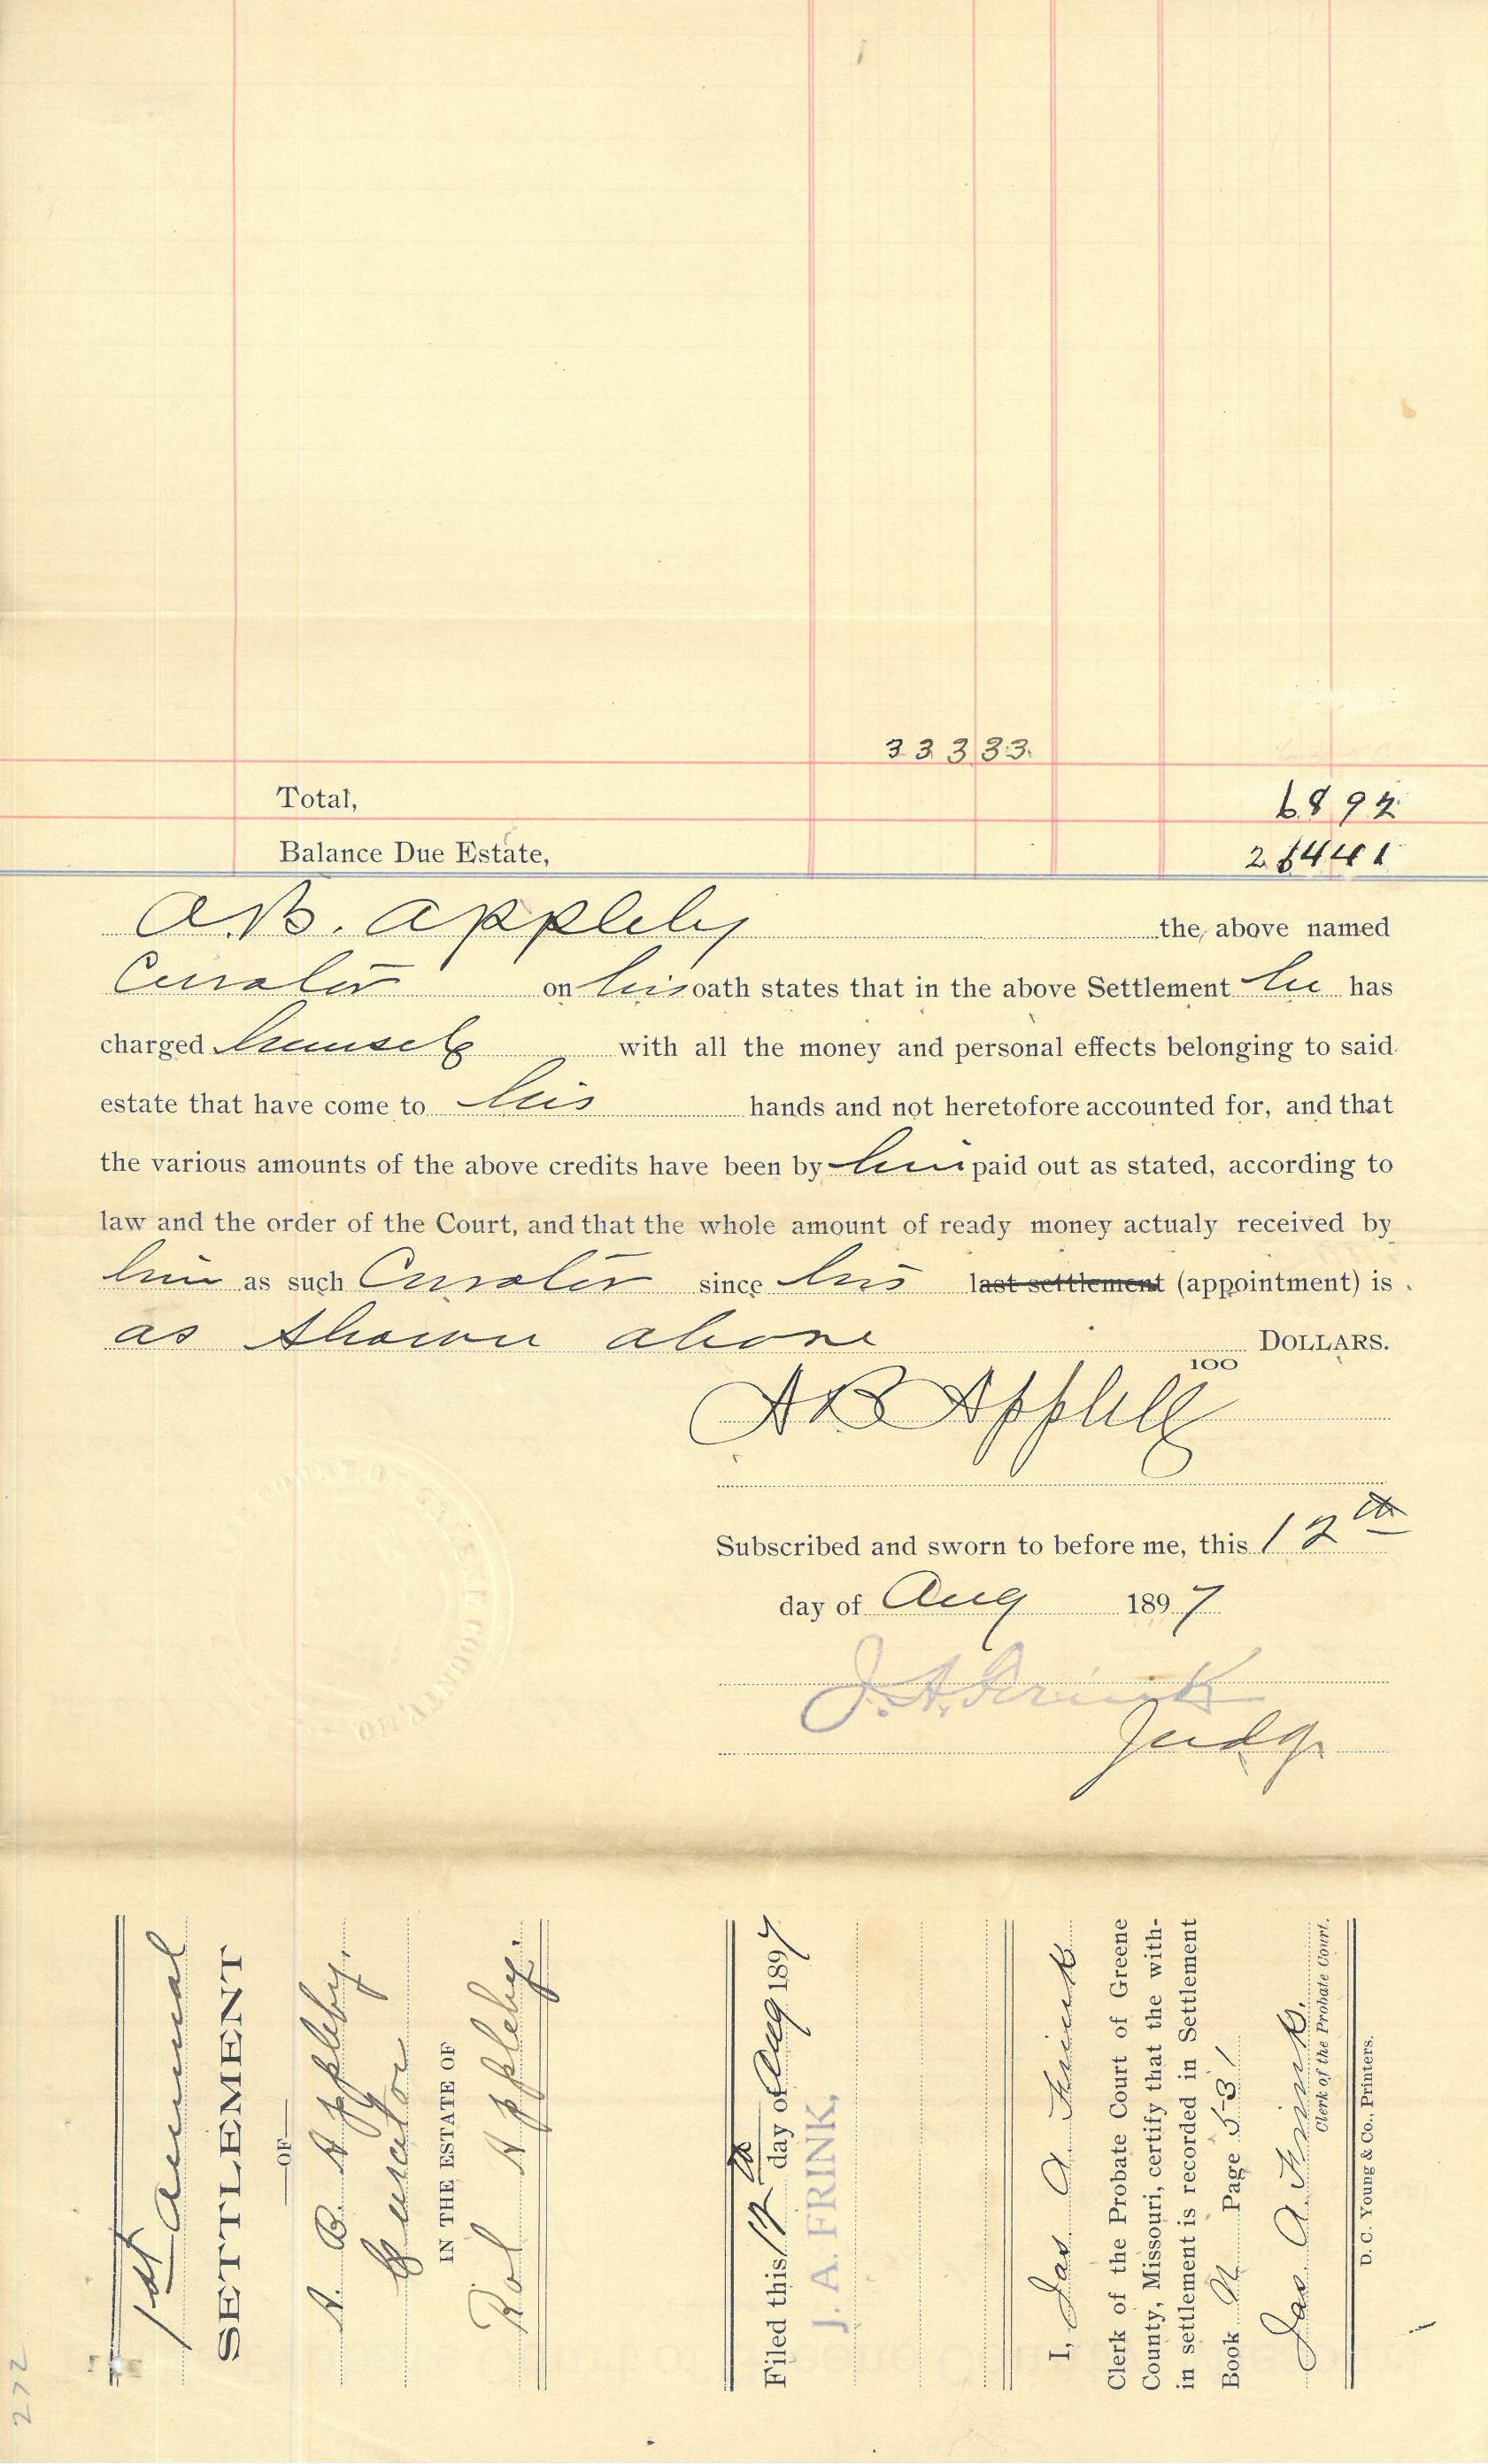 333 33
Total, 68 92
Balance Due Estate, 264 41
A.B. Appleby the above named
Curator on his oath states that in the above Settlement he has
charged himself with all the money and personal effects belonging to said
estate that have come to his hands and not heretofore accounted for, and that
the various amounts of the above credits have been by him paid out as stated, according to
law and the order of the Court, and that the whole amount of ready money actualy received by
him as such Curator since his last settlement (appointment) is
as shown above DOLLARS.
100
A B Appleby
Subscribed and sworn to before me, this 12th
day of Aug 1897
J. A. Frink
Judge
COURT OF GREENE COUNTY, MO
1st Annual
SETTLEMENT
OF
A. B. Appleby,
Curator
IN THE ESTATE OF
Rol Appleby.
Filed this 12th day of Aug 1897
J. A. FRINK,
I, Jas A Frink
Clerk of the Probate Court of Greene
County, Missouri, certify that the with-
in settlement is recorded in Settlement
Book N Page 531
Jas A. Frink.
Clerk of the Probate Court.
D. C. Young & Co., Printers.
272